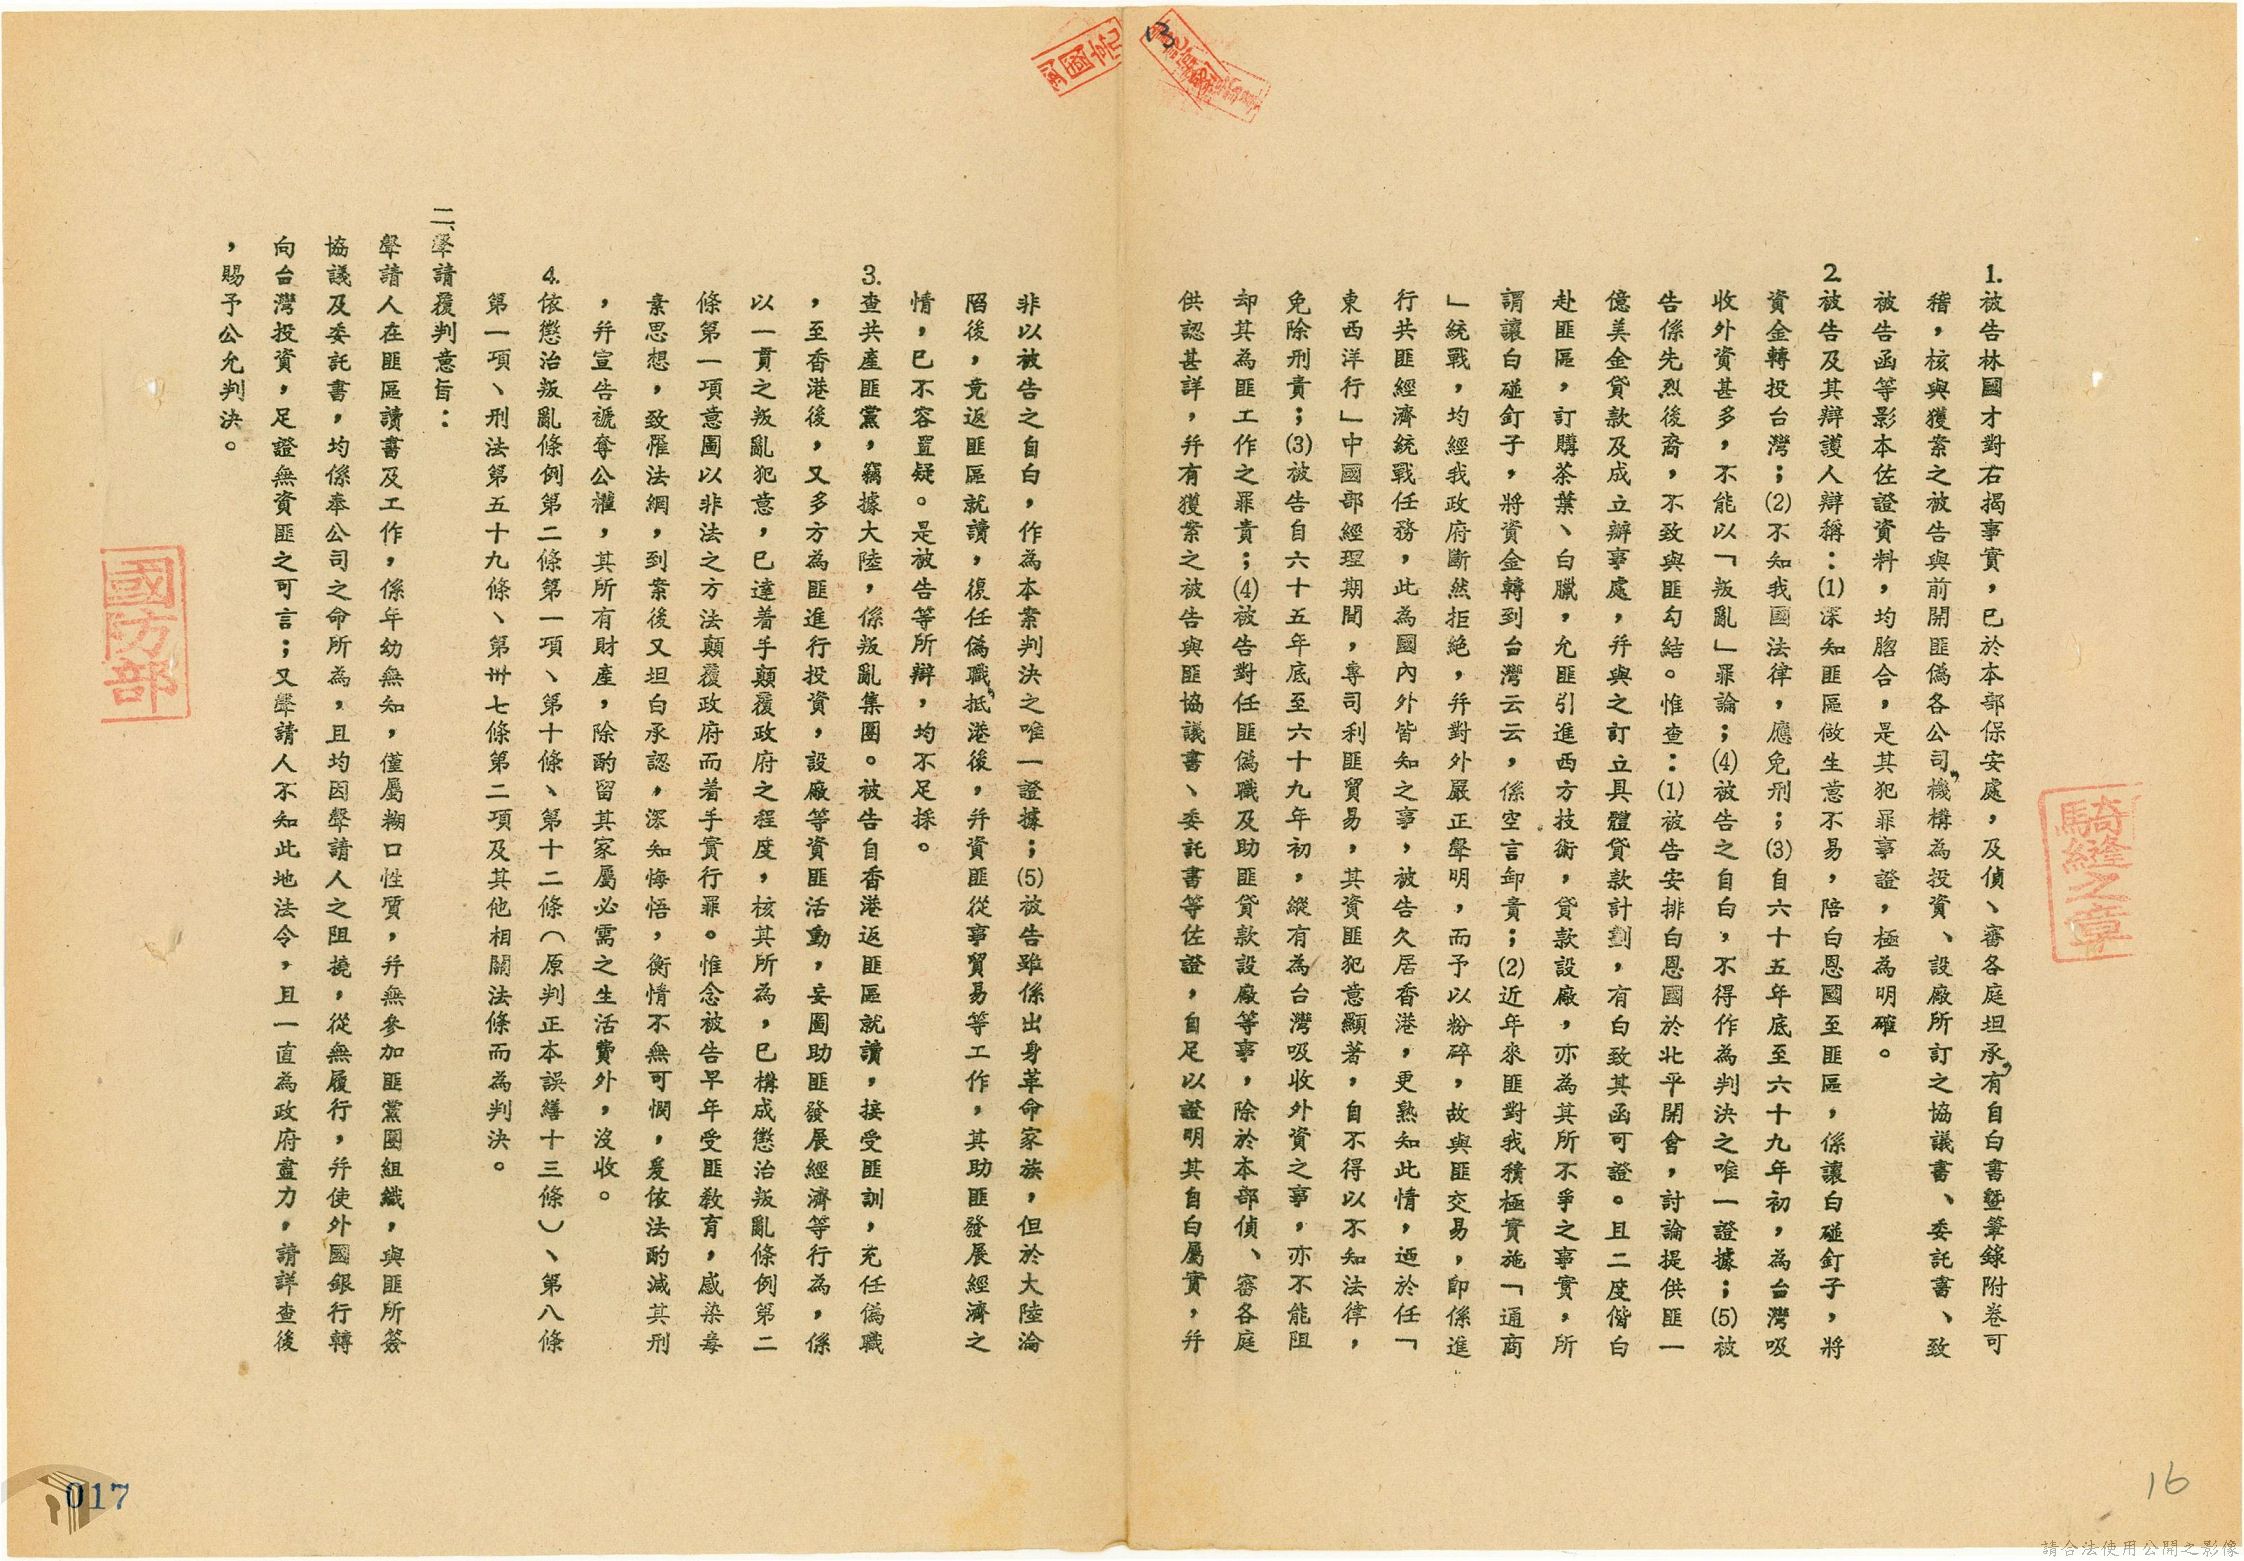 1.被告林國才對右揭事實，已於本部保安處，及偵、審各庭坦承，有自白書暨筆錄附卷可
稽，核與獲案之被告與前開匪偽各公司，機構為投資、設廠所訂之協議書、委託書、致
被告函等影本佐證資料，均脗合，是其犯罪事證，極為明確。
2.被告及其辯護人辯稱：(1)深知匪區做生意不易，陪白恩國至匪區，係讓白碰釘子，將
資金轉投台灣；(2)不知我國法律，應免刑；(3)自六十五年底至六十九年初，為台灣吸
收外資甚多，不能以「叛亂」罪論；(4)被告之自白，不得作為判決之唯一證據；(5)被
告係先烈後裔，不致與匪勾結。惟查：(1)被告安排白恩國於北平開會，討論提供匪一
億美金貸款及成立辦事處，幷與之訂立具體貸款計劃，有白致其函可證。且二度偕白
赴匪區，訂購茶葉、白臘，允匪引進西方技術，貸款設廠，亦為其所不爭之事實，所
謂讓白碰釘子，將資金轉到台灣云云，係空言卸責；(2)近年來匪對我積極實施「通商
」統戰，均經我政府斷然拒絕，幷對外嚴正聲明，而予以粉碎，故與匪交易，即係進
行共匪經濟統戰任務，此為國內外皆知之事，被告久居香港，更熟知此情，迺於任「
東西洋行」中國部經理期間，專司利匪貿易，其資匪犯意顯著，自不得以不知法律，
免除刑責；(3)被告自六十五年底至六十九年初，縱有為台灣吸收外資之事，亦不能阻
却其為匪工作之罪責；(4)被告對任匪偽職及助匪貸款設廠等事，除於本部偵、審各庭
供認甚詳，幷有獲案之被告與匪協議書、委託書等佐證，自足以證明其自白屬實，幷
非以被告之自白，作為本案判決之唯一證據；(5)被告雖係出身革命家族，但於大陸淪
陷後，竟返匪區就讀，復任偽職，抵港後，幷資匪從事貿易等工作，其助匪發展經濟之
情，已不容置疑。是被告等所辯，均不足採。
3.查共產匪黨，竊據大陸，係叛亂集團。被告自香港返匪區就讀，接受匪訓，充任偽職
，至香港後，又多方為匪進行投資，設廠等資匪活動，妄圖助匪發展經濟等行為，係
以一貫之叛亂犯意，已達着手顛覆政府之程度，核其所為，已構成懲治叛亂條例第二
條第一項意圖以非法之方法顛覆政府而着手實行罪。惟念被告早年受匪教育，感染毒
素思想，致罹法網，到案後又坦白承認，深知悔悟，衡情不無可憫，爰依法酌減其刑
，幷宣告褫奪公權，其所有財產，除酌留其家屬必需之生活費外，沒收。
4.依懲治叛亂條例第二條第一項、第十條、第十二條（原判正本誤繕十三條）、第八條
第一項、刑法第五十九條、第卅七條第二項及其他相關法條而為判決。
二、聲請覆判意旨：
聲請人在匪區讀書及工作，係年幼無知，僅屬糊口性質，幷無參加匪黨團組織，與匪所簽
協議及委託書，均係奉公司之命所為，且均因聲請人之阻撓，從無履行，幷使外國銀行轉
向台灣投資，足證無資匪之可言；又聲請人不知此地法令，且一直為政府盡力，請詳查後
，賜予公允判決。
國防部
騎縫之章
16
017
請合法使用公開之影像